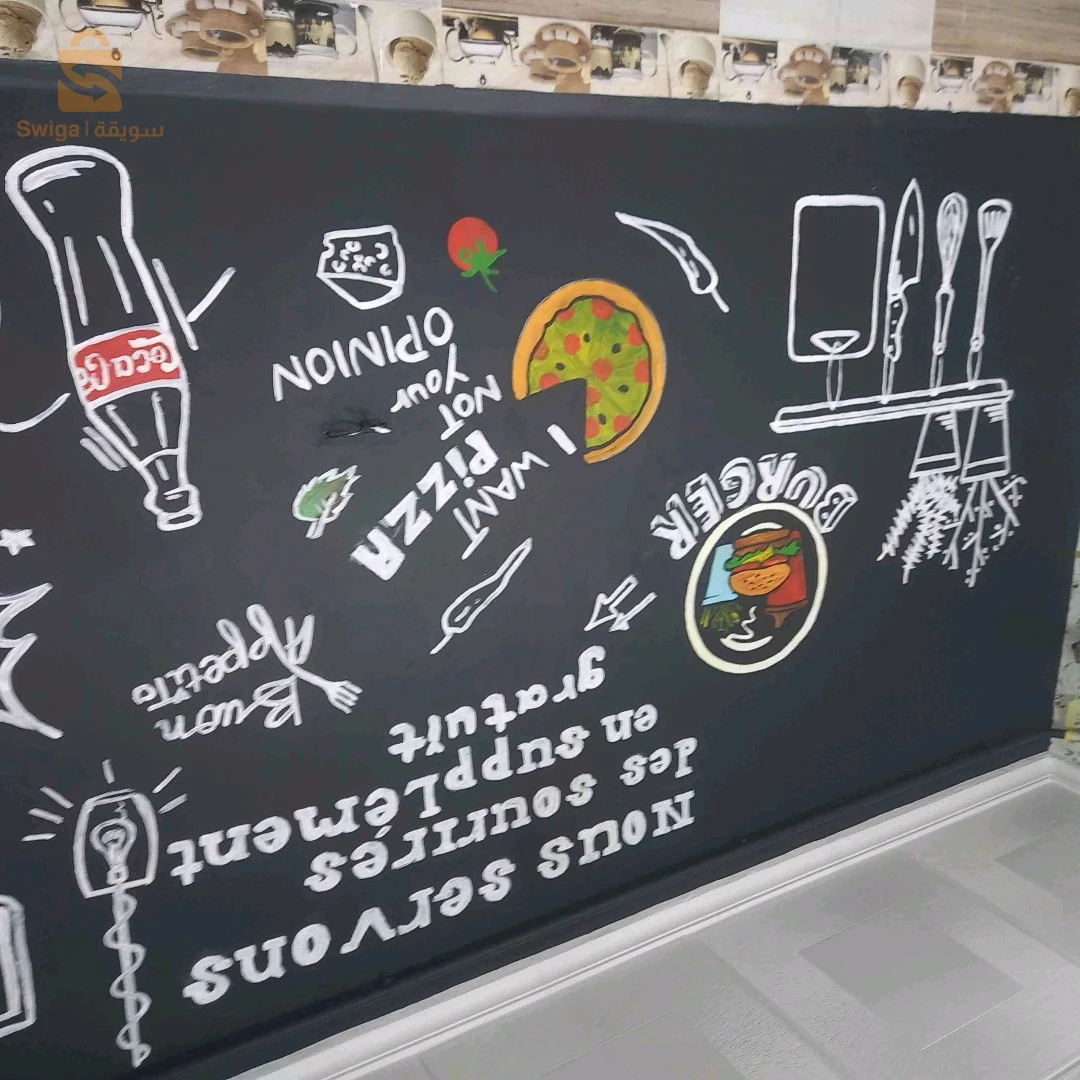 Swiga | سويقة
Nous servons
des sourrirés
en supplément
gratuit
Buon
Appetito
BURGER
I WANT
PIZZA
NOT
YOUR
OPINION